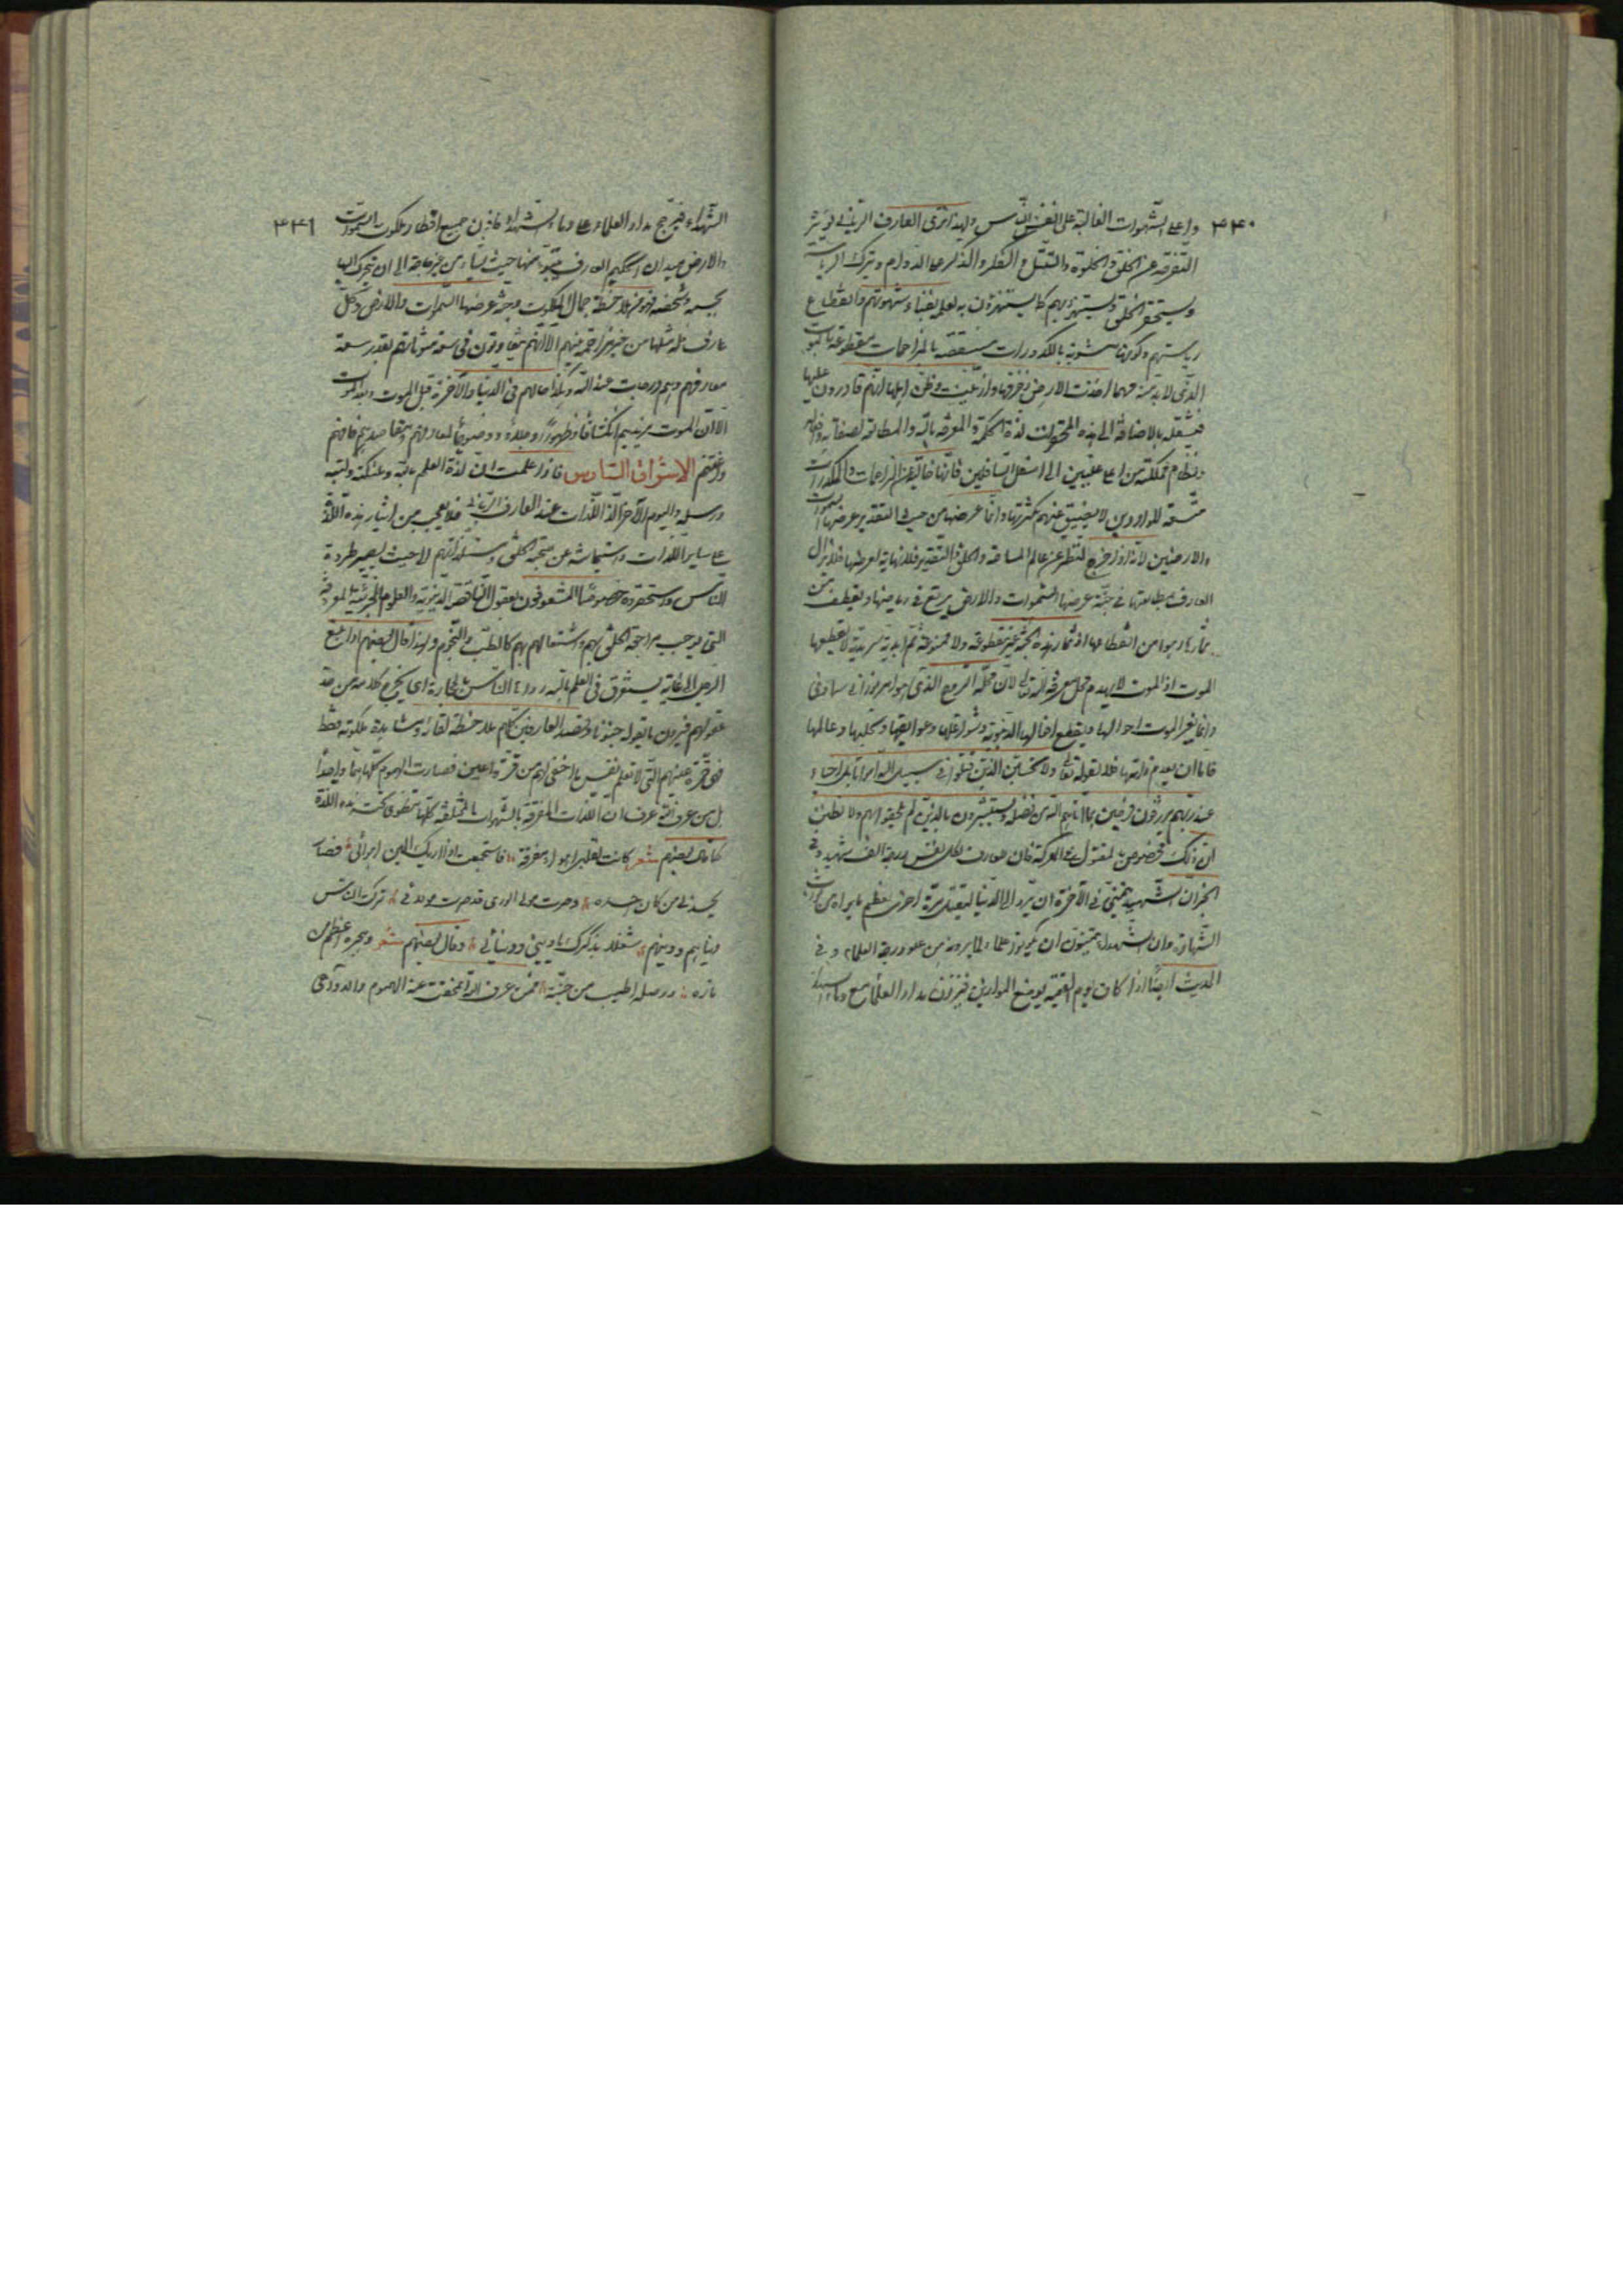 ٣٤٠ واعلى الشهوات الغالبة على انفس الناس ولهذا ترى العارف الرباني يؤثر
التفرقة عن الخلق والخلوة والتبتل والفكر والذكر على الدوام ويترك الرياسة
ويستحقر الخلق ويستهزئ بهم كما يستهزؤن به لعلمه بفناء شهوتهم وانقطاع
رياستهم وكونها مشوبة بالكدورات منغصة بالمزاحمات مقطوعة بالموت
الذي لا بد منه مهما اخذت الارض زخرفها وازينت وظن اهلها انهم قادرون عليها
فيشغله بالاضافة الى هذه لذة الحكمة والمعرفة بالله والمطالعة لصفاته وافعاله
ونظام مملكته من اعلى عليين الى اسفل السافلين فانها خالية عن المزاحمات والمكدرات
متسعة للواردين لا يضيق عنهم بكثرتها وانما عرضها من حيث التقدير عرضها السموات
والارضين لانه اذا خرج النظر عن عالم المساحة والخلق والتقدير فلا نهاية لعرضها فلا يزال
العارف بمطالعتها في جنة عرضها السموات والارض يرتع في رياضها ويقطف من
ثمارها وهو امن من انقطاعها اذ ثمار هذه الجنة غير مقطوعة ولا ممنوعة ثم ابدية سرمدية لا يقطعها
الموت اذ الموت لا يهدم محل معرفة الله تعالى لان محله الروح الذي هو امر رباني سماوي
وانما يغير الموت احوالها ويقطع اشغالها الدنيوية وشواغلها وعوايقها
فاما ان يعدم ذاتها فلا لقوله تعالى ولا تحسبن الذين قتلوا في سبيل الله امواتا بل احياء
عند ربهم يرزقون فرحين بما اتاهم الله من فضله ويستبشرون بالذين لم يلحقوا بهم ولا تظنن
ان ذلك مخصوص بالمقتول في المعركة فان للعارف بكل نفس درجة الف شهيد وفي
الخبر ان الشهيد يتمنى في الآخرة ان يرد الى الدنيا ليقتل مرة اخرى لعظم ما يراه من ثواب
الشهادة وان الشهداء يتمنون ان يكونوا علماء لما يرونه من علو درجة العلماء وفي
الحديث ايضا اذا كان يوم القيمة يوضع الموازين فيوزن مداد العلماء مع دماء
٣٤١ الشهداء فيرجح مداد العلماء على دماء الشهداء فاذن جميع اقطار ملكوت السموات
والارض ميدان الحكيم العارف يتبوء منها حيث يشاء من غير حاجة الى ان يتحرك اليها
بجسمه وشخصه فهو من ملاحظة جمال الملكوت في جنة عرضها السموات والارض وكل
عارف فله مثلها من غير مزاحمة منهم الا انهم يتفاوتون في سعة متنزهاتهم بقدر سعة
معارفهم وهم درجات عند الله وهكذا حالهم في الدنيا والآخرة قبل الموت وبعد الموت
الا ان الموت يزيدهم انكشافا وظهورا وجلاء ووضوحا لمعارفهم ومقاصدهم فافهم
واغتنم الاشراق السادس فاذا علمت ان لذة العلم بالله وملائكته وكتبه
ورسله واليوم الآخر الذ اللذات عند العارف الرباني فلا تعجب من ايثار هذه اللذة
على ساير اللذات واستيحاشه عن صحبة الخلق ومستلذاتهم لا حيث يصير طردة
الناس واستحقروه خصوصا المشعوفون بعقول الناقصة الدنيوية والعلوم الجزئية المعروفة
التي يوجب مراجعة الخلق بهم واشتغالهم بهم كالطب والنجوم ولهذا قال بعضهم اذا بلغ
الرجل الى غاية يستغرق في العلم بالله رماه الناس بالحجارة اي يخرج كلامه من حد
عقولهم فيرون ما يقوله جنونا وقصد العارفين كلهم ملاحظة لقائه ومشاهدة ملكوته فقط
فهي قرة عينهم التي لا تعلم نفس ما اخفي لهم من قرة اعين فصارت الهموم كلها هما واحدا
بل من عرف الله عرف ان اللذات المتفرقة بالشهوات المختلفة كلها ينطوي تحت هذه اللذة
كما قال بعضهم شعر كانت لقلبي اهواء مفرقة فاستجمعت اذ رأتك العين اهوائي فصار
يحسدني من كان احسده وصرت مولى الورى مذ صرت مولائي تركت للناس
دنياهم ودينهم شغلا بذكرك يا ديني ودنيائي وقال بعضهم شعر وهجره اعظم من
ناره ووصله اطيب من جنته فمن عرف الله انمحقت عنه الهموم والدواعي